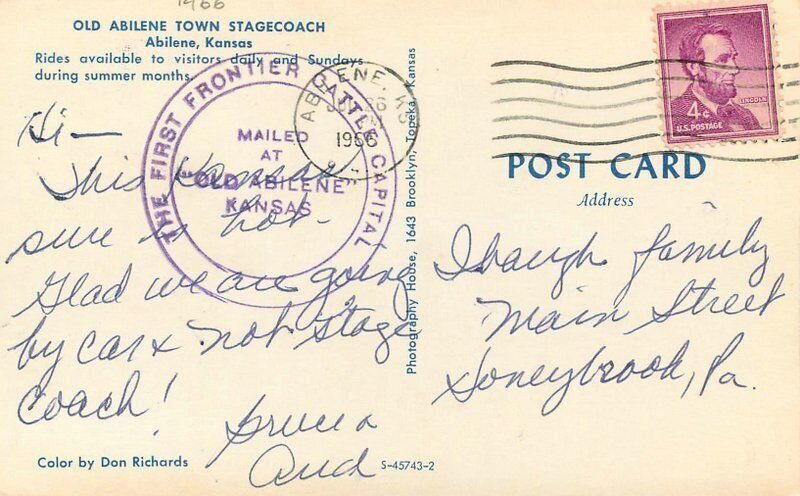 1966
OLD ABILENE TOWN STAGECOACH
Abilene, Kansas
Rides available to visitors daily and Sundays
during summer months.
THE FIRST FRONTIER CATTLE CAPITAL
MAILED
AT
"OLD ABILENE"
KANSAS
ABILENE, KS
1966
4¢
LINCOLN
U.S. POSTAGE
Hi—
This Kansas
sure is hot.
Glad we are going
by car & not stage
coach!
and
Photography House, 1643 Brooklyn, Topeka, Kansas
POST CARD
Address
family
Main Street
Honeybrook, Pa.
Color by Don Richards
S-45743-2